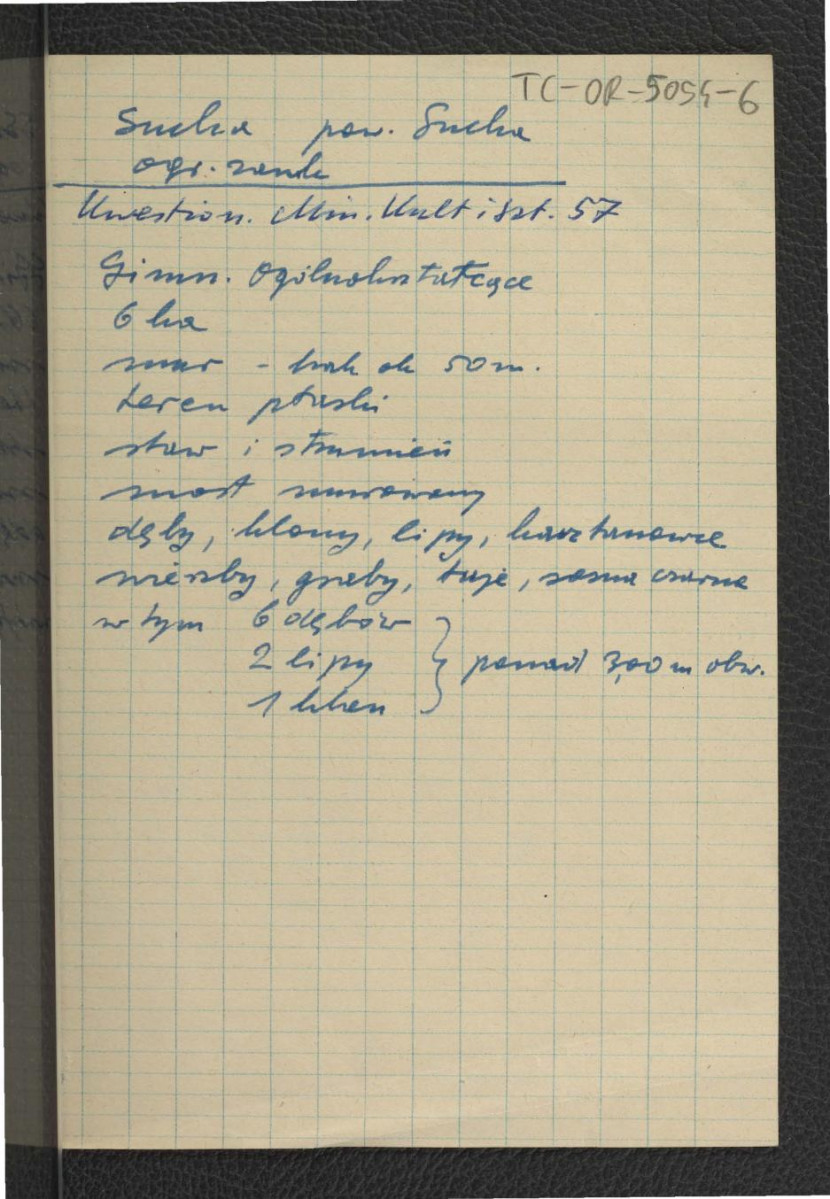 TC-OR-5054-6
Sucha pow. Sucha
ogr. zamk
Kwestion. Min. Kult i Szt. 57
Gimn. Ogólnokształcące
6 ha
mur - brak ok 50 m.
teren płaski
staw i strumień
most murowany
dęby, klony, lipy, kasztanowce
wierzby, graby, tuje, sosna czarna
w tym 6 dębów
2 lipy } ponad 3,00 m obw.
1 klon